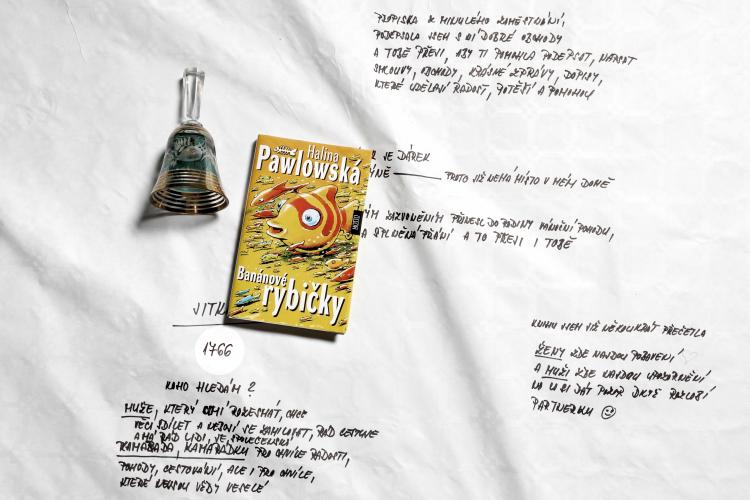 PROPISKA Z MINULÉHO ZAMĚSTNÁNÍ,
PODEPSALA JSEM S NÍ DOBRÉ OBCHODY
A TOBĚ PŘEJI, ABY TI POMOHLA PODEPSAT, NAPSAT
SMLOUVY, OBCHODY, KRÁSNÉ ZPRÁVY, DOPISY,
KTERÉ UDĚLAJÍ RADOST, POTĚŠÍ A POMOHOU
JE DÁREK
PROTO JIŽ NEMÁ MÍSTO V MÉM DOMĚ
ZAZVONĚNÍM PŘINESL DO RODINY VÁNOČNÍ POHODU,
A SPLNĚNÁ PŘÁNÍ A TO PŘEJI I TOBĚ
Halina
Pawlowská
MOTTO
Banánové
rybičky
JITK
1766
KNIHU JSEM JIŽ NĚKOLIKRÁT PŘEČETLA
ŽENY ZDE NAJDOU POBAVENÍ
A MUŽI ZDE NAJDOU UPOZORNĚNÍ
NA CO SI DÁT POZOR DNEŠ ROZLOBÍ
PARTNERKU
KOHO HLEDÁM ?
MUŽE, KTERÝ UMÍ ROZESMÁT, CHCE
VĚCI SDÍLET A NEBOJÍ SE ZAMILOVAT, RÁD CESTUJE
A MÁ RÁD LIDI, JE SPOLEČENSKÝ
KAMARÁDA, KAMARÁDKU PRO CHVÍLE RADOSTI,
POHODY, CESTOVÁNÍ, ALE I PRO CHVÍLE,
KTERÉ NEJSOU VŽDY VESELÉ